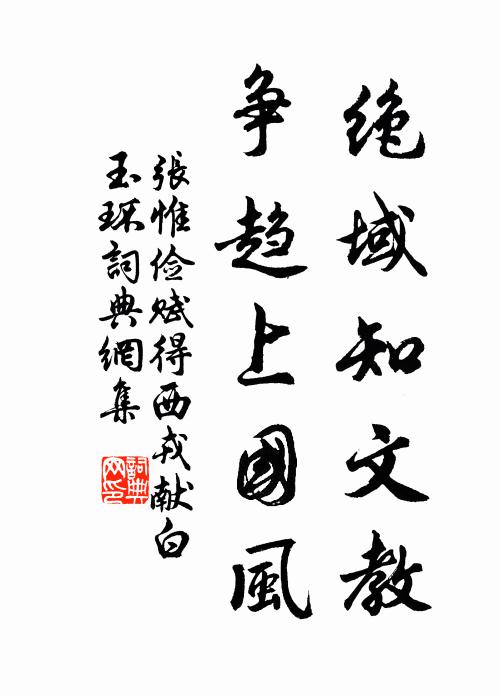 绝域知文教
争趋上國風
張惟俭赋得西戎献白
玉环詞典網集
詞典
网印